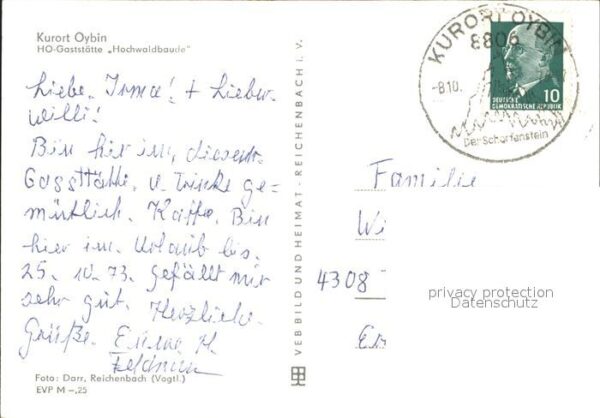 Kurort Oybin
HO-Gaststätte „Hochwaldbaude"
Liebe Irma! + Lieber
Willi!
Bin hier in diesem
Gasstätte u. Trinke ge-
mütlich Kaffe. Bin
hier im Urlaub bis
25. 10. 73. Gefällt mir
sehr gut. Herzliche
Grüße.
Foto: Darr, Reichenbach (Vogtl.)
EVP M –,25
VEB BILD UND HEIMAT · REICHENBACH I. V.
KURORT OYBIN
8806
-8.10.
Der Scharfenstein
10
DEUTSCHE
DEMOKRATISCHE REPUBLIK
Familie
Wi
4308
privacy protection
Datenschutz